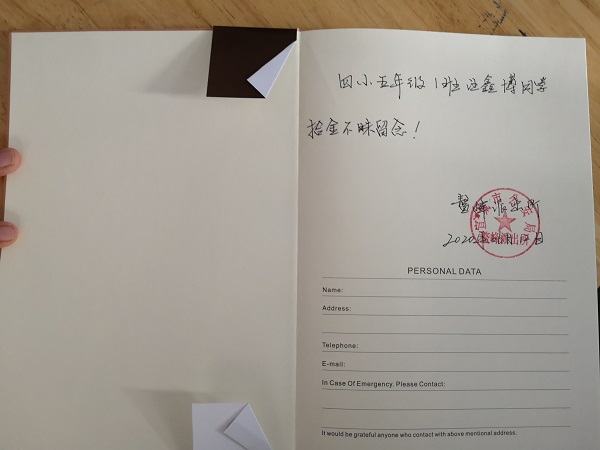 四小五年级1班汪鑫博同学
拾金不昧留念！
鳌峰派出所
PERSONAL DATA
Name:
Address:
Telephone:
E-mail:
In Case Of Emergency. Please Contact:
It would be grateful anyone who contact with above mentional address.